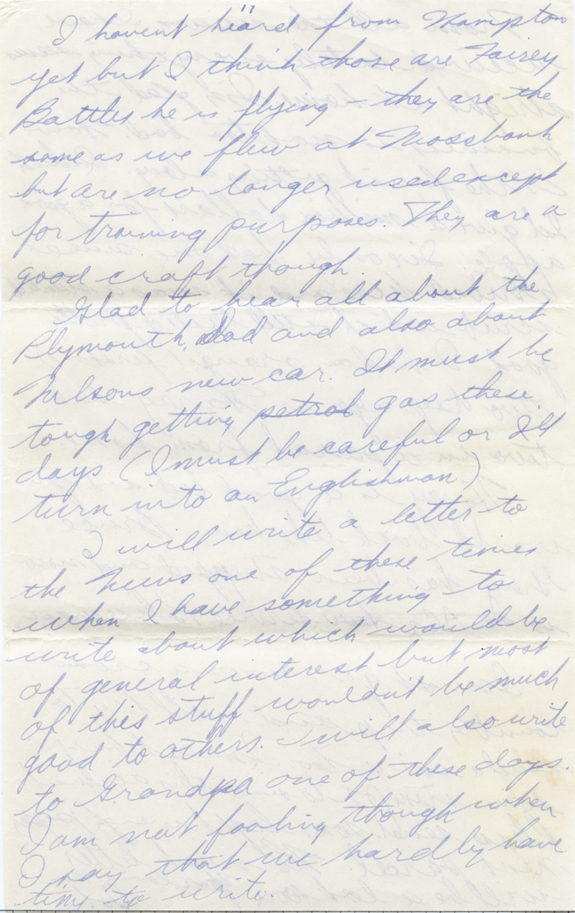 I havent heard from Hampton
yet but I think those are Fairey
Battles he is flying – they are the
same as we flew at Mossbank
but are no longer used except
for training purposes. They are a
good craft though.
Glad to hear all about the
Plymouth, Dad and also about
Nelsons new car. It must be
tough getting petrol gas these
days (I must be careful or I'll
turn into an Englishman)
I will write a letter to
the News one of these times
when I have something to
write about which would be
of general interest but most
of this stuff wouldn't be much
good to others. I will also write
to Grandpa one of these days.
I am not fooling though when
I say that we hardly have
time to write.